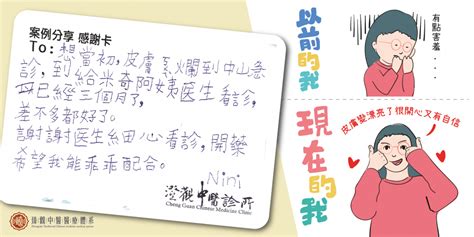 案例分享 感謝卡
To: 想當初,皮膚爛到中山急
診,到給米奇阿姨医生看診,
已經三個月了,
差不多都好了。
謝謝医生細心看診,開藥
希望我能乖乖配合。
Nini
澄觀中醫診所
Cheng Guan Chinese Medicine Clinic
中醫醫療體系
以前的我
有點害羞...
現在的我
皮膚變漂亮了很開心又有自信